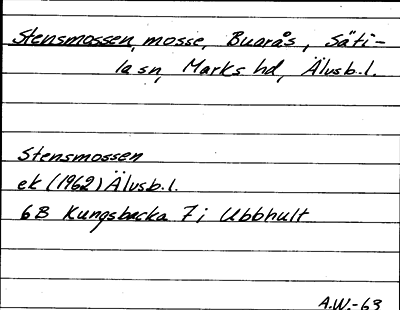 Stensmossen, mosse, Buarås, Säti-
la sn, Marks hd, Älvsb.l.
Stensmossen
ek (1962) Älvsb.l.
6B Kungsbacka 7i Ubbhult
A.W.-63